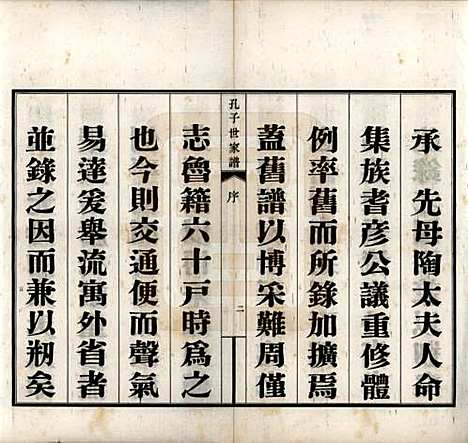 承　先母陶太夫人命
集族耆彦公議重修體
例率舊而所錄加擴焉
蓋舊譜以博采難周僅
孔子世家譜　序　二
志魯籍六十戶時爲之
也今則交通便而聲氣
易達爰舉流寓外省者
並錄之因而兼以刱矣